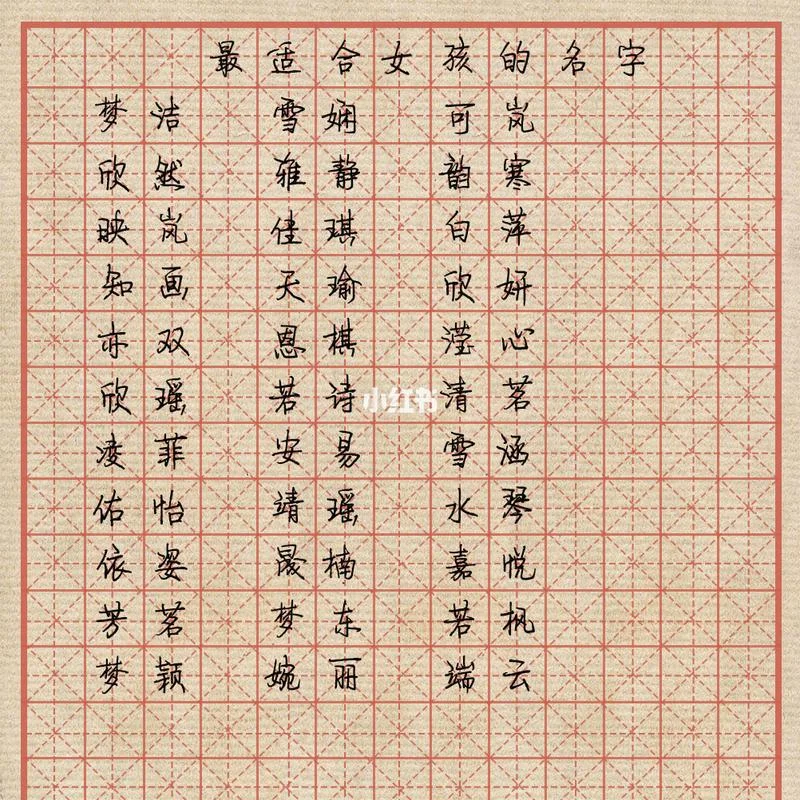 最适合女孩的名字
梦洁 雪娴 可岚
欣然 雅静 韵寒
映岚 佳琪 白萍
知画 天瑜 欣妍
亦双 恩棋 滢心
欣瑶 若诗 清茗
凌菲 安易 雪涵
佑怡 靖瑶 水琴
依姿 晟楠 嘉悦
芳茗 梦东 若枫
梦颖 婉丽 端云
小红书